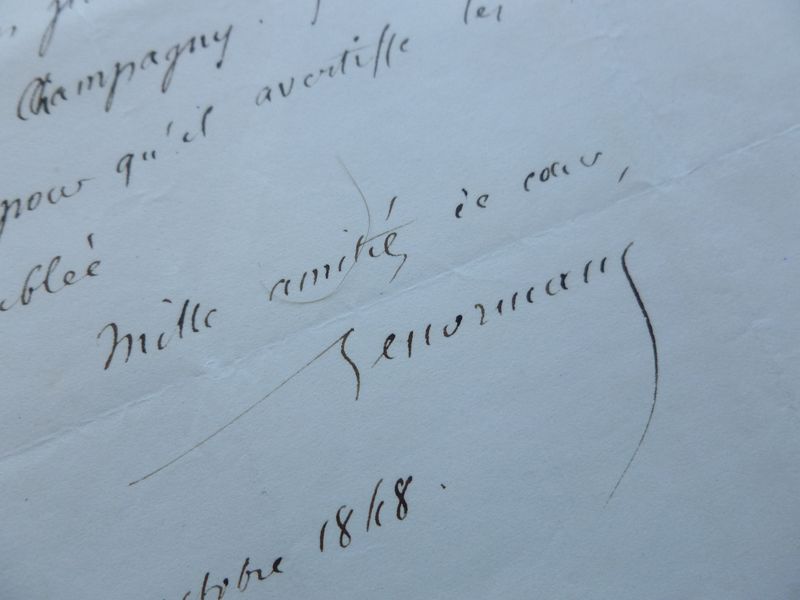 Champagny. les
pour qu'il avertisse
ablée
Mille amitiés de cœur,
Lenormant
octobre 1848.